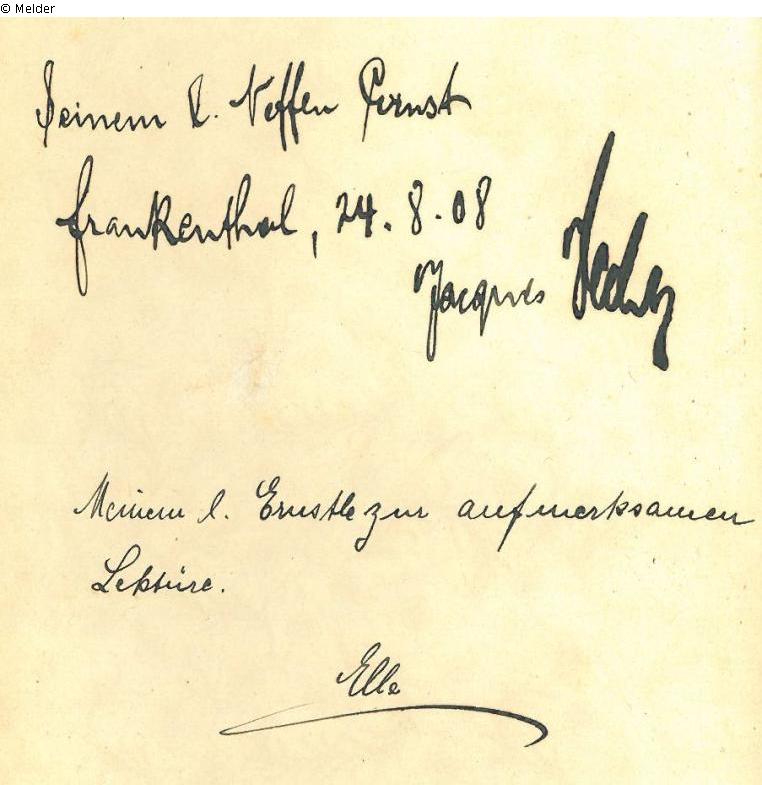 © Melder
Seinem l. Neffen Ernst
Frankenthal, 24. 8. 08
Jacques
Meinem l. Ernstle zur aufmerksamen
Lektüre.
Elle